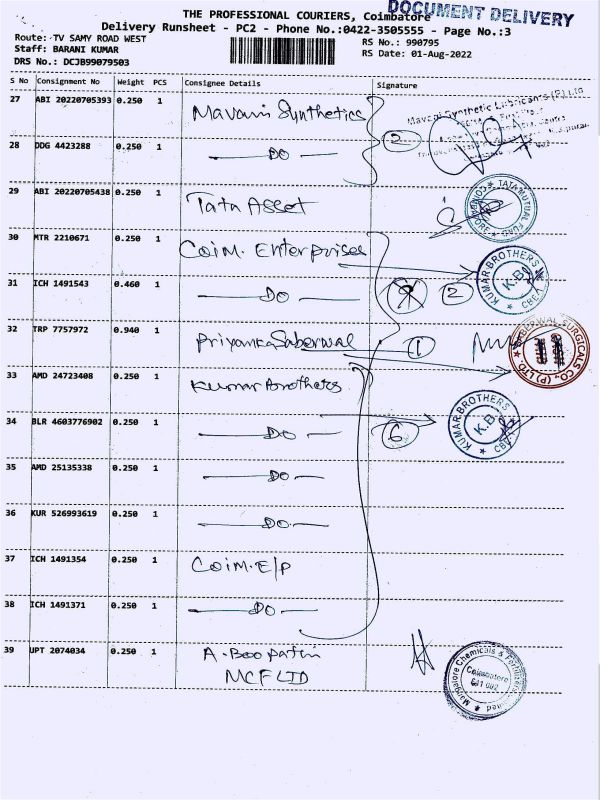 DOCUMENT DELIVERY
THE PROFESSIONAL COURIERS, Coimbatore
Delivery Runsheet - PC2 - Phone No.:0422-3505555 - Page No.:3
Route: TV SAMY ROAD WEST
RS No.: 990795
Staff: BARANI KUMAR
RS Date: 01-Aug-2022
DRS No.: DCJB99079503
S No Consignment No Weight PCS Consignee Details Signature
27 ABI 20220705393 0.250 1 Mavani Synthetics
28 DDG 4423288 0.250 1 DO 2
29 ABI 20220705438 0.250 1 Tata Asset
TATA MUTUAL FUND
30 MTR 2210671 0.250 1 Coim. Enterprises
KUMAR BROTHERS K.B. CBE
31 ICH 1491543 0.460 1 DO 2
32 TRP 7757972 0.940 1 Priyanka Saberwal 1
SABERWAL SURGICALS CO., (P) LTD.
33 AMD 24723408 0.250 1 Kumar Brothers
34 BLR 4603776902 0.250 1 DO 6
KUMAR BROTHERS K.B. CBE
35 AMD 25135338 0.250 1 DO
36 KUR 526993619 0.250 1 DO
37 ICH 1491354 0.250 1 Coim. E/P
38 ICH 1491371 0.250 1 DO
39 UPT 2074034 0.250 1 A. Boopathi
MCF LTD
Mangalore Chemicals & Fertilizers Limited
Coimbatore
641 002